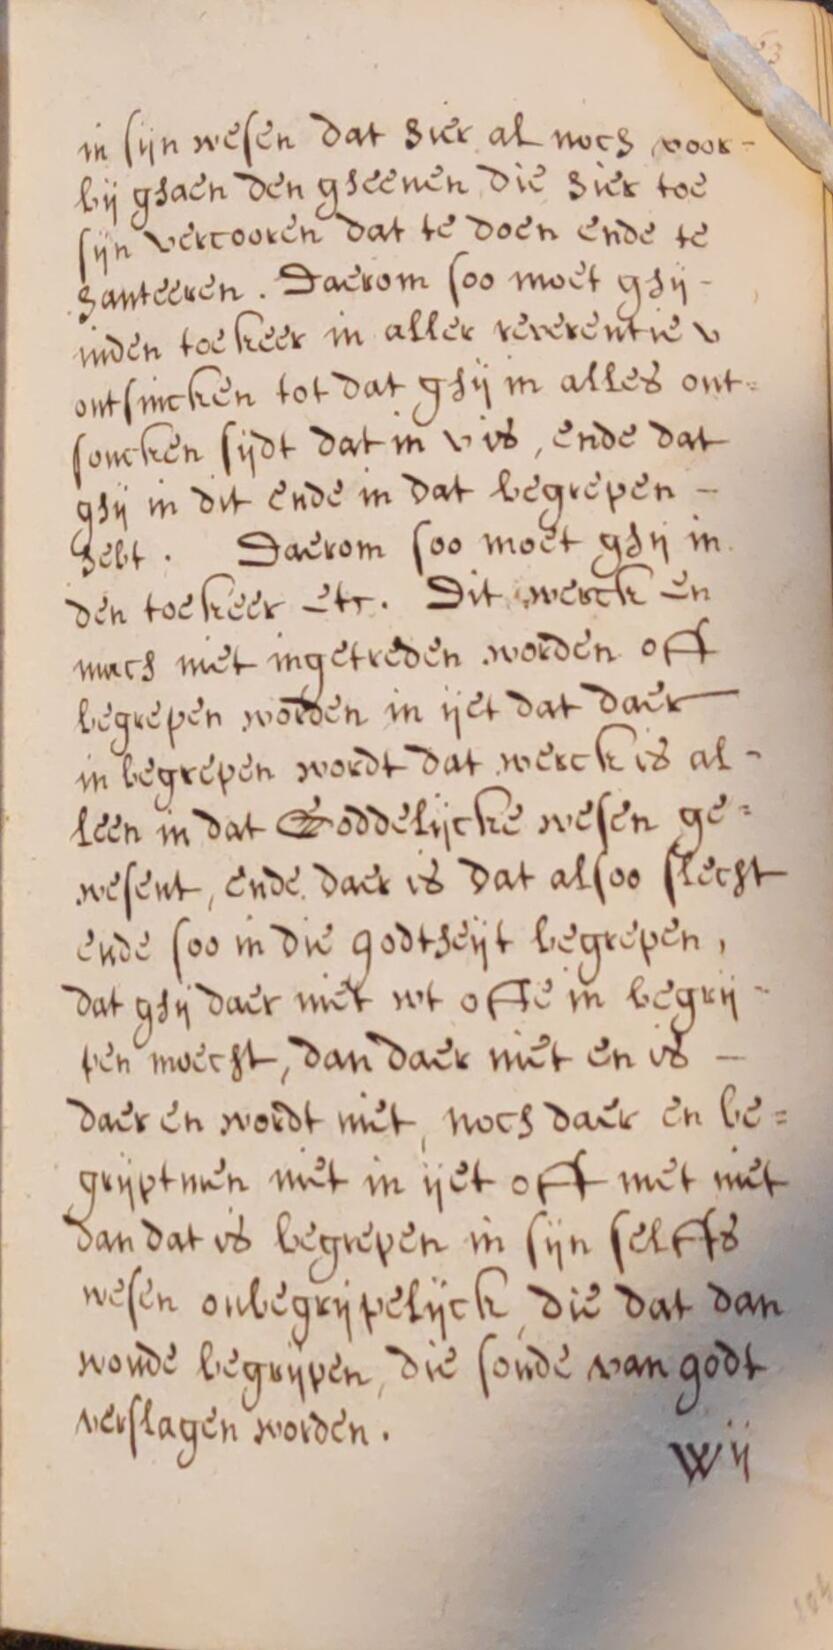 in sijn wesen dat hier al noch voor-
bij ghaen den gheenen die hier toe
sijn vercooren dat te doen ende te
hanteeren. Daerom soo moet ghij -
inden toekeer in aller reverentie v
ontsincken tot dat ghij in alles ont=
soncken sijdt dat in v is, ende dat
ghij in dit ende in dat begrepen -
hebt. Daerom soo moet ghij in
den toekeer etc. Dit werck en
mach niet ingetreden worden off
begrepen worden in ijet dat daer
in begrepen wordt dat werck is al-
leen in dat Goddelijcke wesen ge=
wesent, ende daer is dat alsoo slecht
ende soo in die godtheijt begrepen,
dat ghij daer niet wt offe in begrij-
pen moecht, dan daer niet en is -
daer en wordt niet, noch daer en be=
grijptmen niet in ijet off met niet
dan dat is begrepen in sijn selffs
wesen onbegrijpelijck, die dat dan
woude begrijpen, die soude van godt
verslagen worden.
Wij